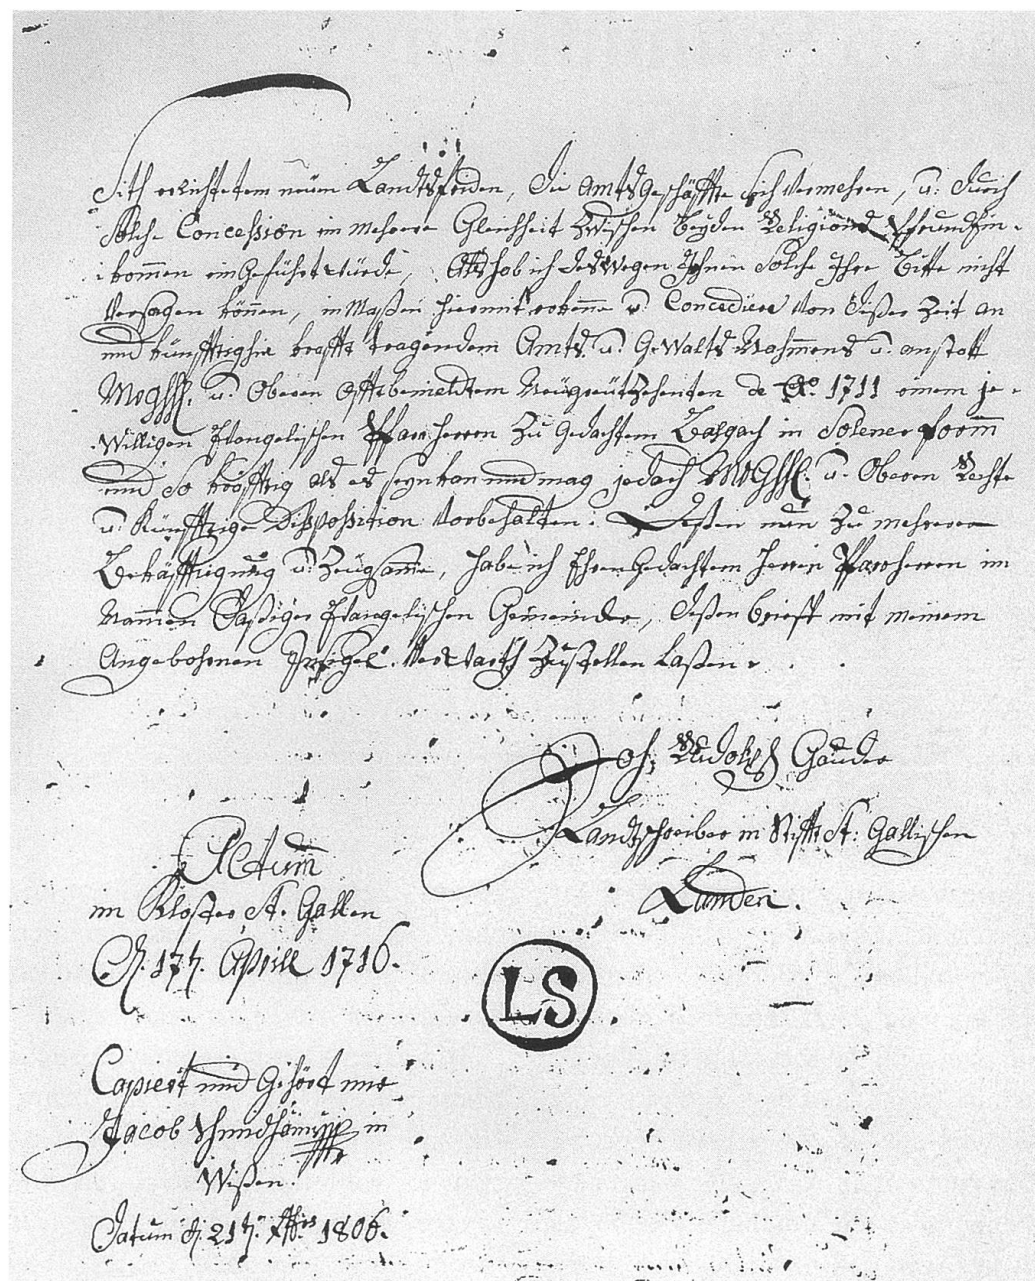 Sith errichtetem neüen Landtsfriden, die Amts Geschäffte sich vermehren, u. durch
Solche Concession ein Mehrere Gleichheit Zwischen beyden Religions Pfrundein-
kommen eingeführt würde, Als hab ich deswegen Ihnen Solche Ihre bitte nicht
Versagen können, in Maßen hiermit erkenne u. Concediere von dißer Zeit an
und künfftighin krafft tragendem Amts u. Gewalts Nahmens u. anstatt
MrGHHl. u. Oberen offtbemeldtem Neügreützehenten de Ao. 1711 einem je-
Willigen Evangelischen Pfarrherren Zu gedachtem Balgach in Solener form
und so kräfftig als es seyn kan und mag jedoch MrGHHl. u. Oberen Rechte
u. Künfftige Disposition vorbehalten. Deßen nun Zu mehrerer
Bekräfftigung u. Zeügsamme, habe ich Ehren Gedachtem Herren Pfarrherren im
Nammen Dasiger Evangelischen Gemeinde, deßen brieff mit meinem
Angebohrnen Insigel Verwarth Zustellen Laßen.
Joh. Rudolph Gauder
Landtschreiber in Stifft St. Gallischen
Landen.
Actum
im Kloster St. Gallen
D. 17t. Aprill 1716.
LS
Capiert und Ghört mir
Jacob in
Wißen.
Datum d. 21t. 1806.